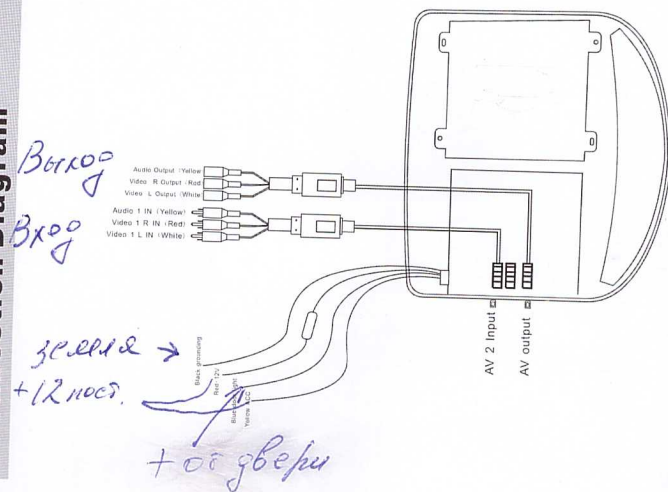 Connection Diagram
Выход
Audio Output (Yellow
Video R Output (Red
Video L Output (White
Вход
Audio 1 IN (Yellow)
Video 1 R IN (Red)
Video 1 L IN (White)
земля →
Black grounding
+12 пост.
Red-12V
Blue door light
Yellow ACC
+ от двери
AV 2 Input
AV output